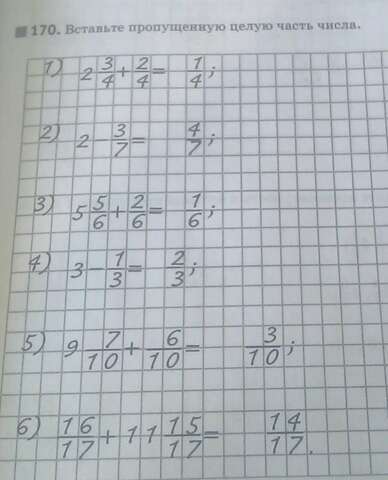 170. Вставьте пропущенную целую часть числа.
1) 2 3/4 + 2/4 = 1/4;
2) 2 − 3/7 = 4/7;
3) 5 5/6 + 2/6 = 1/6;
4) 3 − 1/3 = 2/3;
5) 9 7/10 + 6/10 = 3/10;
6) 16/17 + 11 15/17 = 14/17.